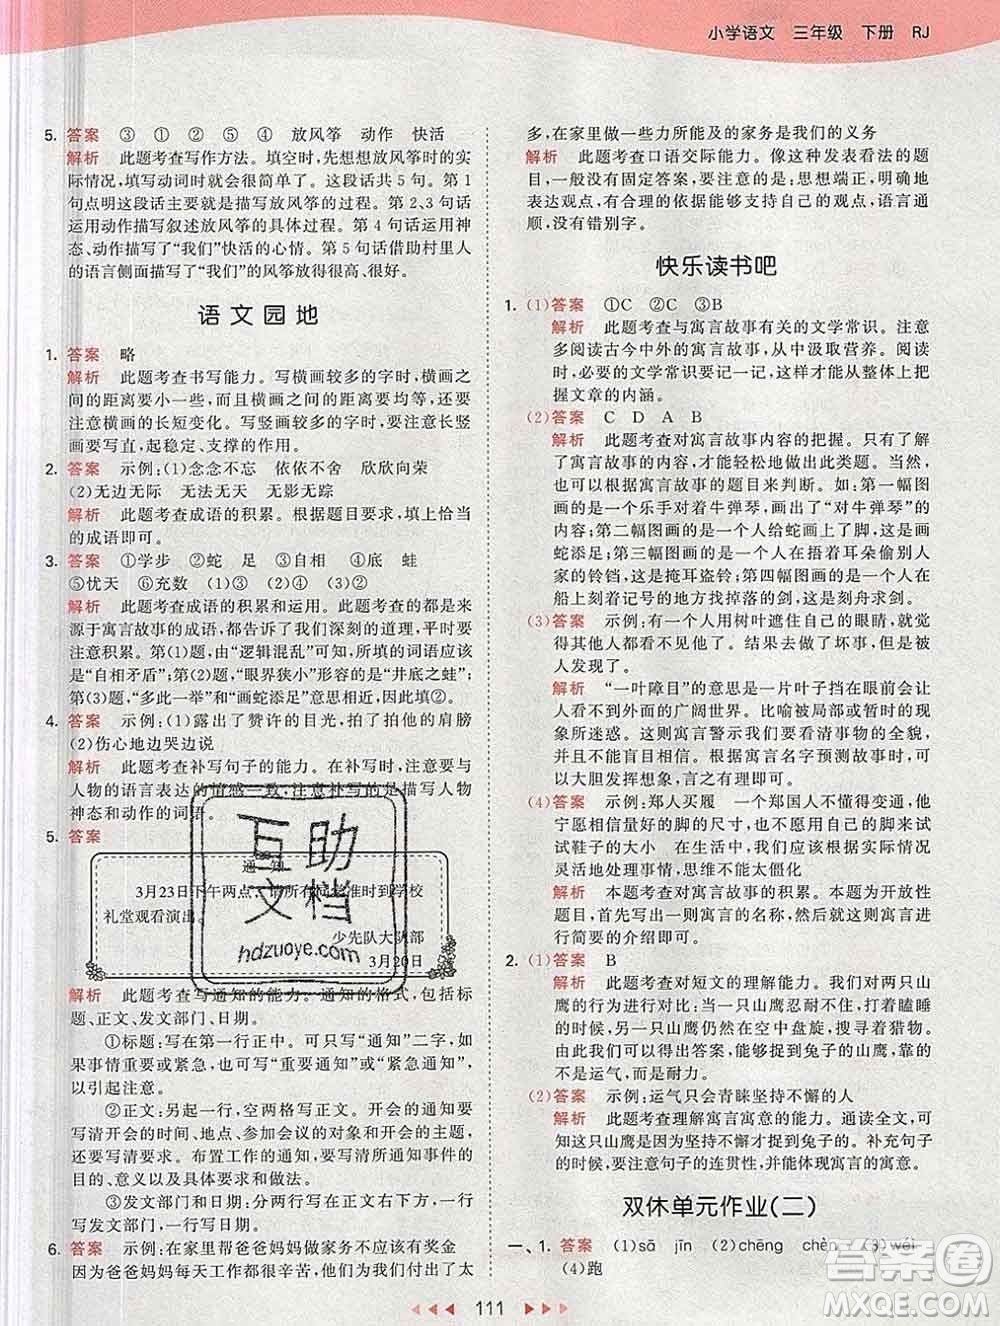 小学语文 三年级 下册 RJ
5. 答案 ③ ① ② ⑤ ④ 放风筝 动作 快活
解析 此题考查写作方法。填空时,先想想放风筝时的实
际情况,填写动词时就会很简单了。这段话共 5 句。第 1
句点明这段话主要就是描写放风筝的过程。第 2、3 句话
运用动作描写叙述放风筝的具体过程。第 4 句话运用神
态、动作描写了“我们”快活的心情。第 5 句话借助村里人
的语言侧面描写了“我们”的风筝放得很高、很好。
语文园地
1. 答案 略
解析 此题考查书写能力。写横画较多的字时,横画之
间的距离要小一些,而且横画之间的距离要均等,还要
注意横画的长短变化。写竖画较多的字时,要注意最长
竖画要写直,起稳定、支撑的作用。
2. 答案 示例:(1)念念不忘 依依不舍 欣欣向荣
(2)无边无际 无法无天 无影无踪
解析 此题考查成语的积累。根据题目要求,填上恰当
的成语即可。
3. 答案 ①学步 ②蛇 足 ③自相 ④底 蛙
⑤忧天 ⑥充数 (1)③ (2)④ (3)②
解析 此题考查成语的积累和运用。此题考查的都是来
源于寓言故事的成语,都告诉了我们深刻的道理,平时要
注意积累。第(1)题,由“逻辑混乱”可知,所填的词语应该
是“自相矛盾”;第(2)题,“眼界狭小”形容的是“井底之蛙”;
第(3)题,“多此一举”和“画蛇添足”意思相近,因此填②。
4. 答案 示例:(1)露出了赞许的目光,拍了拍他的肩膀
(2)伤心地边哭边说
解析 此题考查补写句子的能力。在补写时,注意要与
人物的语言表达的情感一致,注意补写的是描写人物
神态和动作的词语。
5. 答案
通 知
3月23日下午两点,请所有同学准时到学校
礼堂观看演出。
少先队大队部
3月20日
互助
文档
hdzuoye.com
解析 此题考查写通知的能力。通知的格式,包括标
题、正文、发文部门、日期。
①标题:写在第一行正中。可只写“通知”二字,如
果事情重要或紧急,也可写“重要通知”或“紧急通知”,
以引起注意。
②正文:另起一行,空两格写正文。开会的通知要
写清开会的时间、地点、参加会议的对象和开会的主题,
还要写清要求。布置工作的通知,要写清通知事件的
目的、意义以及具体要求。
③发文部门和日期:分两行写在正文右下方,一行
写发文部门,一行写日期。
6. 答案 示例:在家里帮爸爸妈妈做家务不应该有奖金
因为爸爸妈妈每天工作都很辛苦,我们现在也长大了
多,在家里做一些力所能及的家务是我们的义务
解析 此题考查口语交际能力。像这种发表看法的题
目,一般没有固定答案,要注意的是:思想端正,明确地
表达观点,有合理的依据能够支持自己的观点,语言通
顺,没有错别字。
快乐读书吧
1. (1)答案 ①C ②C ③B
解析 此题考查与寓言故事有关的文学常识。注意
多阅读古今中外的寓言故事,从中汲取营养。阅读
时,必要的文学常识要记一记,这样才能从整体上把
握文章的内涵。
(2)答案 C D A B
解析 此题考查对寓言故事内容的把握。只有了解
了寓言故事的内容,才能轻松地做出此类题。当然,
也可以根据寓言故事的题目来判断。如:第一幅图
画的是一个人对着牛弹琴,画出了“对牛弹琴”
的内容;第二幅图画的是一个人给蛇画上了脚,是画
蛇添足;第三幅图画的是一个人在捂着耳朵偷别人
家的铃铛,是掩耳盗铃;第四幅图画的是一个人在
船上刻着记号的地方找掉落的剑,是刻舟求剑。
(3)答案 示例:有一个人用树叶遮住自己的眼睛,
以为别人都看不见他了。结果去做了坏事,一下就
被人发现了。
解析 “一叶障目”的意思是一片叶子挡在眼前会让
人看不到外面的广阔世界。比喻被局部或暂时的现
象所迷惑。这则寓言警示我们要看清事物的全貌,
不能盲目相信。根据寓言名字预测故事时,我们可
以大胆发挥想象,言之有理即可。
(4)答案 示例:郑人买履 一个郑国人不懂得变通,他
宁愿相信量好的脚的尺寸,也不用自己的脚来试
试鞋子的大小 在生活中,我们要会根据实际情况
灵活地处理事情,思维不能太僵化
解析 本题考查对寓言故事的积累。本题为开放性
题目,首先写出寓言的名称,然后按要求进行简要
的介绍即可。
2. (1)答案 B
解析 此题考查对短文的理解能力。我们对两只山
鹰的行为进行对比,当一只山鹰忍耐不住,打着瞌睡
的时候,另一只山鹰仍然在空中盘旋,搜寻着猎物。
由此我们可以得出答案,能够捉到兔子的山鹰,靠的
不是运气,而是耐力。
(2)答案 示例:运气只会青睐坚持不懈的人
解析 此题考查理解寓言寓意的能力。通读全文,可
以看出这只山鹰是因为坚持不懈才捉到兔子的。补充句子
的时候要注意句子的连贯性,并能体现寓言的寓意。
双休单元作业(二)
一、1. 答案 (1)sā jīn (2)chēng chèn (3)wéi
(4)跑
答案圈
MXQE.COM
111